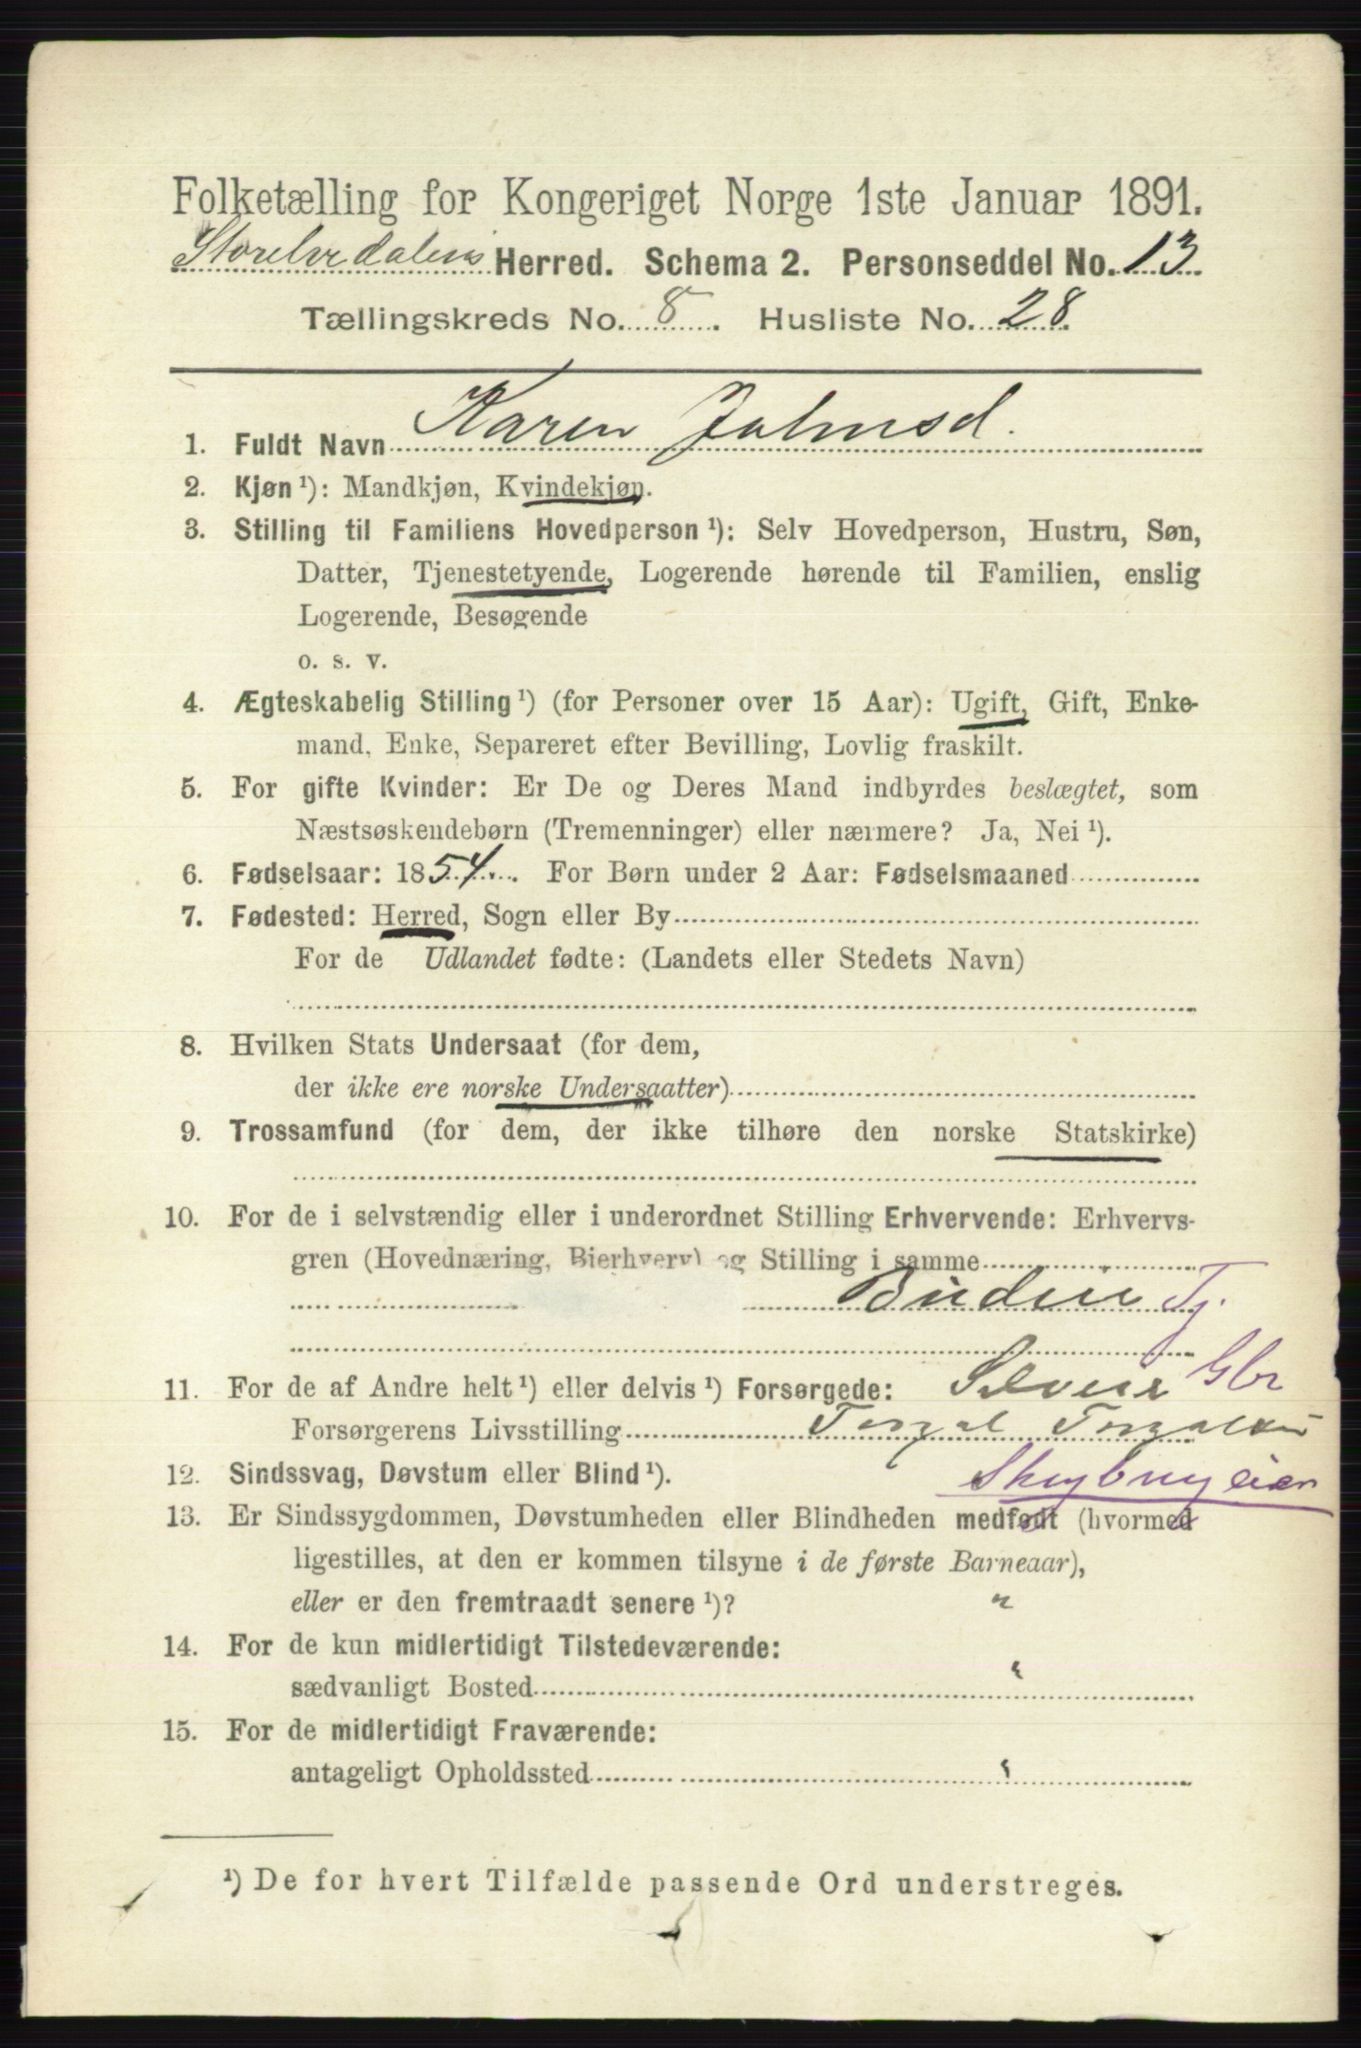 Folketælling for Kongeriget Norge 1ste Januar 1891.
Storelvedalens Herred. Schema 2. Personseddel No. 13
Tællingskreds No. 8. Husliste No. 28.
1. Fuldt Navn Karen Johnsd.
2. Kjøn ¹): Mandkjøn, Kvindekjøn.
3. Stilling til Familiens Hovedperson ¹): Selv Hovedperson, Hustru, Søn,
Datter, Tjenestetyende, Logerende hørende til Familien, enslig
Logerende, Besøgende
o. s. v.
4. Ægteskabelig Stilling ¹) (for Personer over 15 Aar): Ugift, Gift, Enke-
mand, Enke, Separeret efter Bevilling, Lovlig fraskilt.
5. For gifte Kvinder: Er De og Deres Mand indbyrdes beslægtet, som
Næstsøskendebørn (Tremenninger) eller nærmere? Ja, Nei ¹).
6. Fødselsaar: 1854. For Børn under 2 Aar: Fødselsmaaned
7. Fødested: Herred, Sogn eller By
For de Udlandet fødte: (Landets eller Stedets Navn)
8. Hvilken Stats Undersaat (for dem,
der ikke ere norske Undersaatter)
9. Trossamfund (for dem, der ikke tilhøre den norske Statskirke)
10. For de i selvstændig eller i underordnet Stilling Erhvervende: Erhvervs-
gren (Hovednæring, Bierhverv) og Stilling i samme
Budeie Tj.
11. For de af Andre helt ¹) eller delvis ¹) Forsørgede: Gbr
Forsørgerens Livsstilling
12. Sindssvag, Døvstum eller Blind ¹).
13. Er Sindssygdommen, Døvstumheden eller Blindheden medfødt (hvormed
ligestilles, at den er kommen tilsyne i de første Barneaar),
eller er den fremtraadt senere ¹)? "
14. For de kun midlertidigt Tilstedeværende:
sædvanligt Bosted
15. For de midlertidigt Fraværende:
antageligt Opholdssted
¹) De for hvert Tilfælde passende Ord understreges.